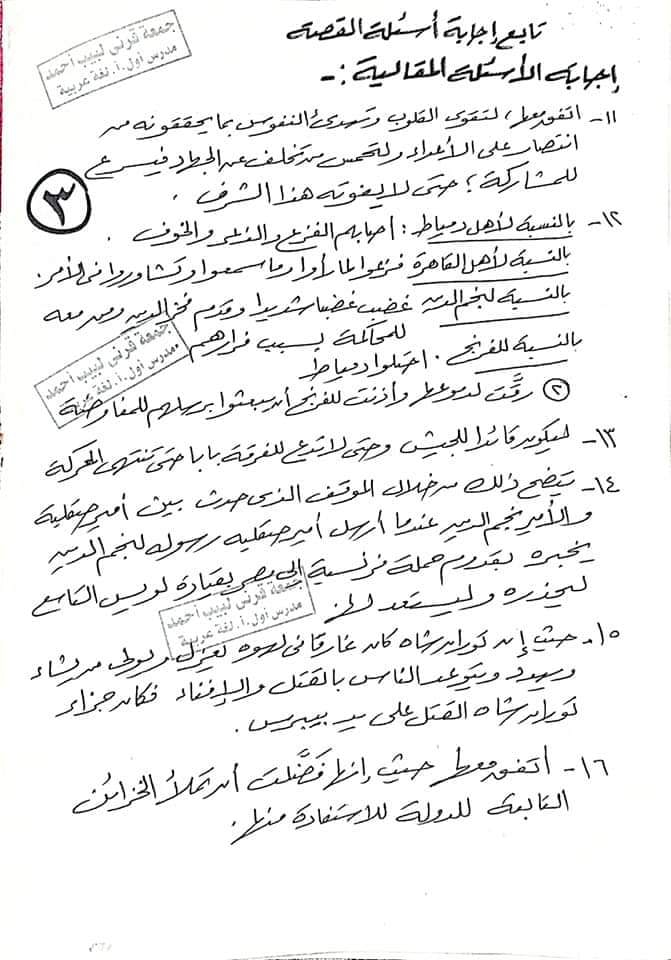 جمعة قرني لبيب احمد
مدرس اول .أ. لغة عربية
تابع إجابة أسئلة القصة
إجابة الأسئلة المقالية :-
١١- اتفق معها، لتقوى القلوب وتهدئ النفوس بما يحققونه من
انتصار على الأعداء ولتحمس من تخلف عن الجهاد فيسرع
للمشاركة ؛ حتى لا يفوته هذا الشرف .
٣
١٢- بالنسبة لأهل دمياط : أصابهم الفزع والذعر والخوف .
بالنسبة لأهل القاهرة فزعوا لما رأوا وما سمعوا وتشاوروا فى الأمر
بالنسبة لنجم الدين غضب غضبا شديدا وقدم فخر الدين ومن معه
للمحاكمة بسبب فرارهم
بالنسبة للفرنج . احتلوا دمياط
جمعة قرني لبيب احمد
مدرس اول .أ. لغة عربية
٢ رقَّت لدموعها وأذنت للفرنج أن يبعثوا برسلهم للمفاوضة
١٣- ليكون قائدا للجيش وحتى لا تدع للفرقة بابا حتى تنتهى المعركة
١٤- يتضح ذلك من خلال الموقف الذى حدث بين أمير صقلية
والأمير نجم الدين عندما أرسل أمير صقلية رسوله لنجم الدين
يخبره بقدوم حملة فرنسية إلى مصر بقيادة لويس التاسع
ليحذره وليستعد لها.
جمعة قرني لبيب احمد
مدرس اول .أ. لغة عربية
١٥- حيث إن توران شاه كان غارقا فى لهوه يعزل ويولى من يشاء
ويهدد ويتوعد الناس بالقتل والإفناء فكان جزاء
توران شاه القتل على يد بيبرس .
١٦- أتفق معها حيث إنها فضَّلت أن تملأ الخزائن
التابعة للدولة للاستفادة منها .